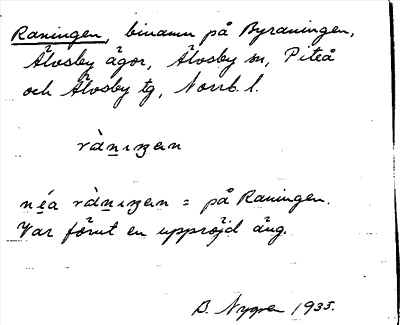 Raningen, binamn på Byraningen,
Älvsby ägor, Älvsby sn, Piteå
och Älvsby tg, Norrb. l.
rànıŋen
néa rànıŋen = på Raningen.
Var förut en uppröjd äng.
B. Nygren 1935.